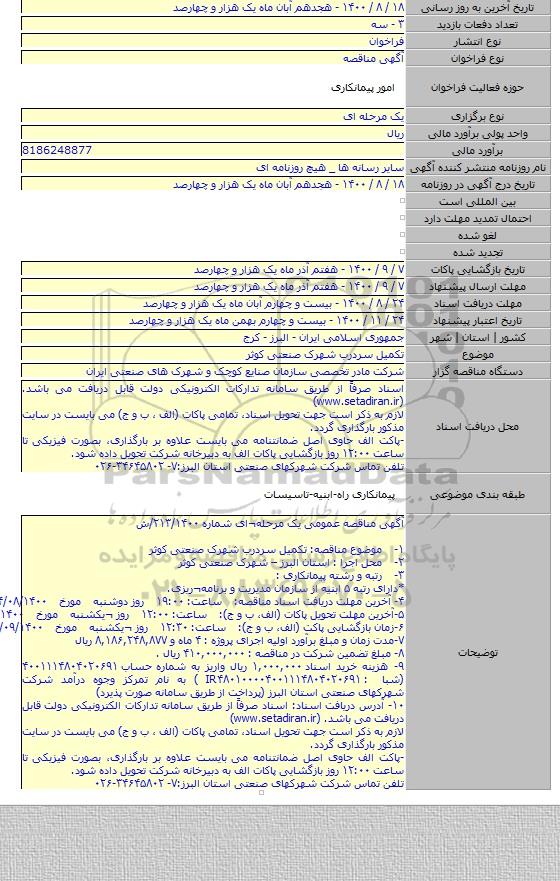 تاریخ آخرین به روز رسانی ۱۸ / ۸ / ۱۴۰۰ - هجدهم آبان ماه یک هزار و چهارصد
تعداد دفعات بازدید ۳ - سه
نوع انتشار فراخوان
نوع فراخوان آگهی مناقصه
حوزه فعالیت فراخوان امور پیمانکاری
نوع برگزاری یک مرحله ای
واحد پولی برآورد مالی ریال
برآورد مالی 8186248877
نام روزنامه منتشر کننده آگهی سایر رسانه ها _ هیچ روزنامه ای
تاریخ درج آگهی در روزنامه ۱۸ / ۸ / ۱۴۰۰ - هجدهم آبان ماه یک هزار و چهارصد
بین المللی است
احتمال تمدید مهلت دارد
لغو شده
تجدید شده
تاریخ بازگشایی پاکات ۷ / ۹ / ۱۴۰۰ - هفتم آذر ماه یک هزار و چهارصد
مهلت ارسال پیشنهاد ۷ / ۹ / ۱۴۰۰ - هفتم آذر ماه یک هزار و چهارصد
مهلت دریافت اسناد ۲۴ / ۸ / ۱۴۰۰ - بیست و چهارم آبان ماه یک هزار و چهارصد
تاریخ اعتبار پیشنهاد ۲۴ / ۱۱ / ۱۴۰۰ - بیست و چهارم بهمن ماه یک هزار و چهارصد
کشور | استان | شهر جمهوری اسلامی ایران - البرز - کرج
موضوع تکمیل سردرب شهرک صنعتی کوثر
دستگاه مناقصه گزار شرکت مادر تخصصی سازمان صنایع کوچک و شهرک های صنعتی ایران
محل دریافت اسناد
اسناد صرفاً از طریق سامانه تدارکات الکترونیکی دولت قابل دریافت می باشد.
(www.setadiran.ir)
لازم به ذکر است جهت تحویل اسناد، تمامی پاکات (الف ، ب و ج) می بایست در سایت
مذکور بارگذاری گردد.
-پاکت الف حاوی اصل ضمانتنامه می بایست علاوه بر بارگذاری، بصورت فیزیکی تا
ساعت ۱۲:۰۰ روز بازگشایی پاکات الف به دبیرخانه شرکت تحویل داده شود.
تلفن تماس شرکت شهرکهای صنعتی استان البرز:۷- ۳۴۶۴۵۸۰۲-۰۲۶
ParsNamadData
طبقه بندی موضوعی پیمانکاری راه-ابنیه-تاسیسات
توضیحات
آگهی مناقصه عمومی یک مرحله¬ای شماره ۲۱۲/۱۴۰۰/ش
۱- موضوع مناقصه: تکمیل سردرب شهرک صنعتی کوثر
۲- محل اجرا : استان البرز – شهرک صنعتی کوثر
۳- رتبه و رشته پیمانکاری :
*دارای رتبه ۵ ابنیه از سازمان مدیریت و برنامه¬ریزی.
۴- آخرین مهلت دریافت اسناد مناقصه: ساعت: ۱۹:۰۰ روز دوشنبه مورخ ۴/۰۸/۱۴۰۰
۵-آخرین مهلت تحویل پاکات (الف، ب و ج): ساعت: ۱۲:۰۰ روز ¬یکشنبه مورخ ۱۴۰۰
۶-زمان بازگشایی پاکت (الف، ب و ج): ساعت: ۱۲:۳۰ روز ¬یکشنبه مورخ ۰۹/۱۴۰۰/
۷-مدت زمان و مبلغ برآورد اولیه اجرای پروژه : ۴ ماه و ۸,۱۸۶,۲۴۸,۸۷۷ ریال
۸- مبلغ تضمین شرکت در مناقصه : ۴۱۰,۰۰۰,۰۰۰ ریال .
۹- هزینه خرید اسناد ۱,۰۰۰,۰۰۰ ریال واریز به شماره حساب ۴۰۰۱۱۱۴۸۰۴۰۲۰۶۹۱
(شبا : IR۴۸۰۱۰۰۰۰۴۰۰۱۱۱۴۸۰۴۰۲۰۶۹۱ ) به نام تمرکز وجوه درآمد شرکت
شهرکهای صنعتی استان البرز (پرداخت از طریق سامانه صورت پذیرد)
۱۰- آدرس دریافت اسناد: اسناد صرفاً از طریق سامانه تدارکات الکترونیکی دولت قابل
دریافت می باشد. (www.setadiran.ir)
لازم به ذکر است جهت تحویل اسناد، تمامی پاکات (الف ، ب و ج) می بایست در سایت
مذکور بارگذاری گردد.
-پاکت الف حاوی اصل ضمانتنامه می بایست علاوه بر بارگذاری، بصورت فیزیکی تا
ساعت ۱۲:۰۰ روز بازگشایی پاکات الف به دبیرخانه شرکت تحویل داده شود.
تلفن تماس شرکت شهرکهای صنعتی استان البرز:۷- ۳۴۶۴۵۸۰۲-۰۲۶